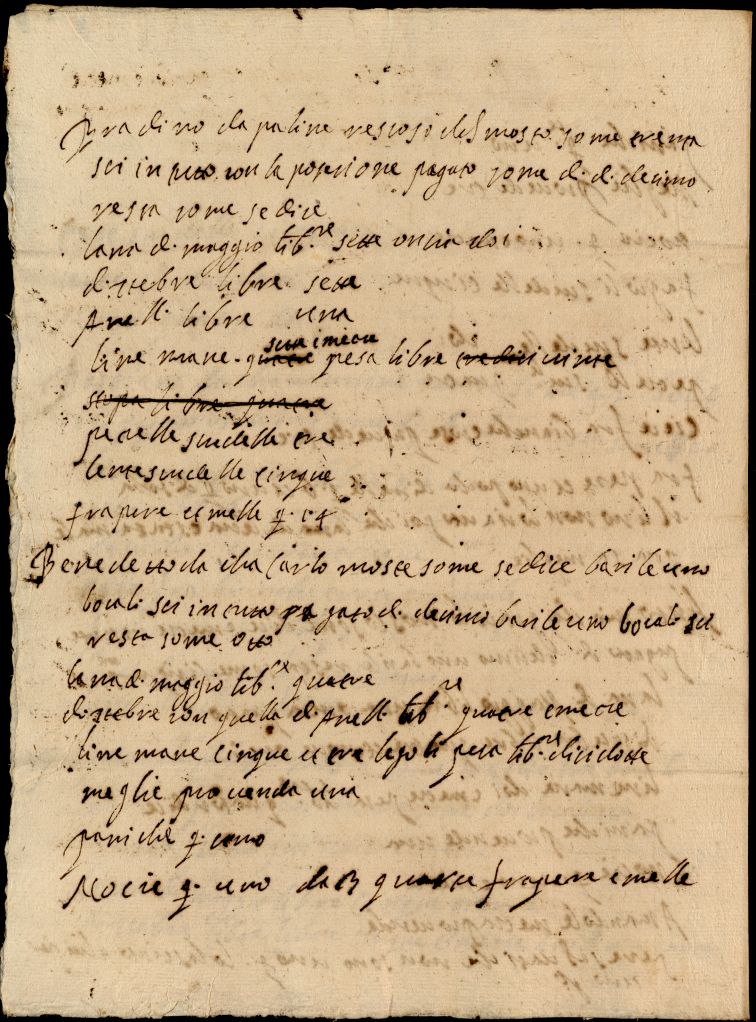 Bradino da paline rescosi del mosto some trenta
sei in tuto con la posesione pagato some di d. decimo
resta some sedice
lana d. maggio lib.re sette oncia doi
d. ottebre libre sette
Anell. libre una
line mane quatre sette i mecie pesa libre tredici vinte
stopa libre quatre
piselle scudelle tre
lente scudelle cinque
fra pere et melle q. 14
Benedetto da cha Carlo moste some sedice barile uno
bocali sei in tutto pagato d. decimo barile uno bocali sei
resta some otto
lana d. maggio lib.re quatre
d. ottebre con quella d. Anell. lib.re quatre e mecie
line mane cinque et tre lepoli pesa lib.re dicidotte
meglie provenda una
paniche q. uno
Nocie q. uno da 3 quarte fra pere e melle